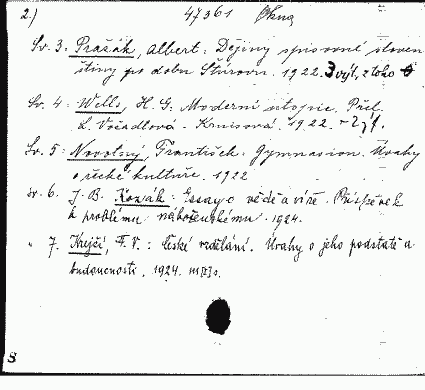 2.) 47361 Okna
Sv. 3: Pražák, Albert: Dějiny spisovné sloven
štiny po dobu Štúrovu. 1922. 3 výt, z toho
Sv. 4: Wells, H. G. Moderní utopie. Přel.
L. Vočadlová - Kniesová. 1922. - 2
Sv. 5: Novotný, František: Gymnasion. Úvahy
o řecké kultuře. 1922
sv. 6. J. B. Kozák: Essay o vědě a víře. Příspěvek
k problému náboženskému. 1924.
" 7. Krejčí, F. V.: České vzdělání. Úvahy o jeho podstatě a
budoucnosti. 1924.
8